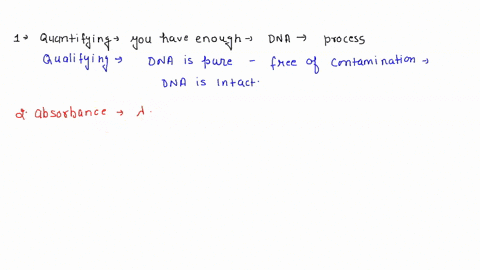 1→ Quantifying → you have enough → DNA → process
Qualifying → DNA is pure - free of contamination →
DNA is intact.
2· absorbance → λ·